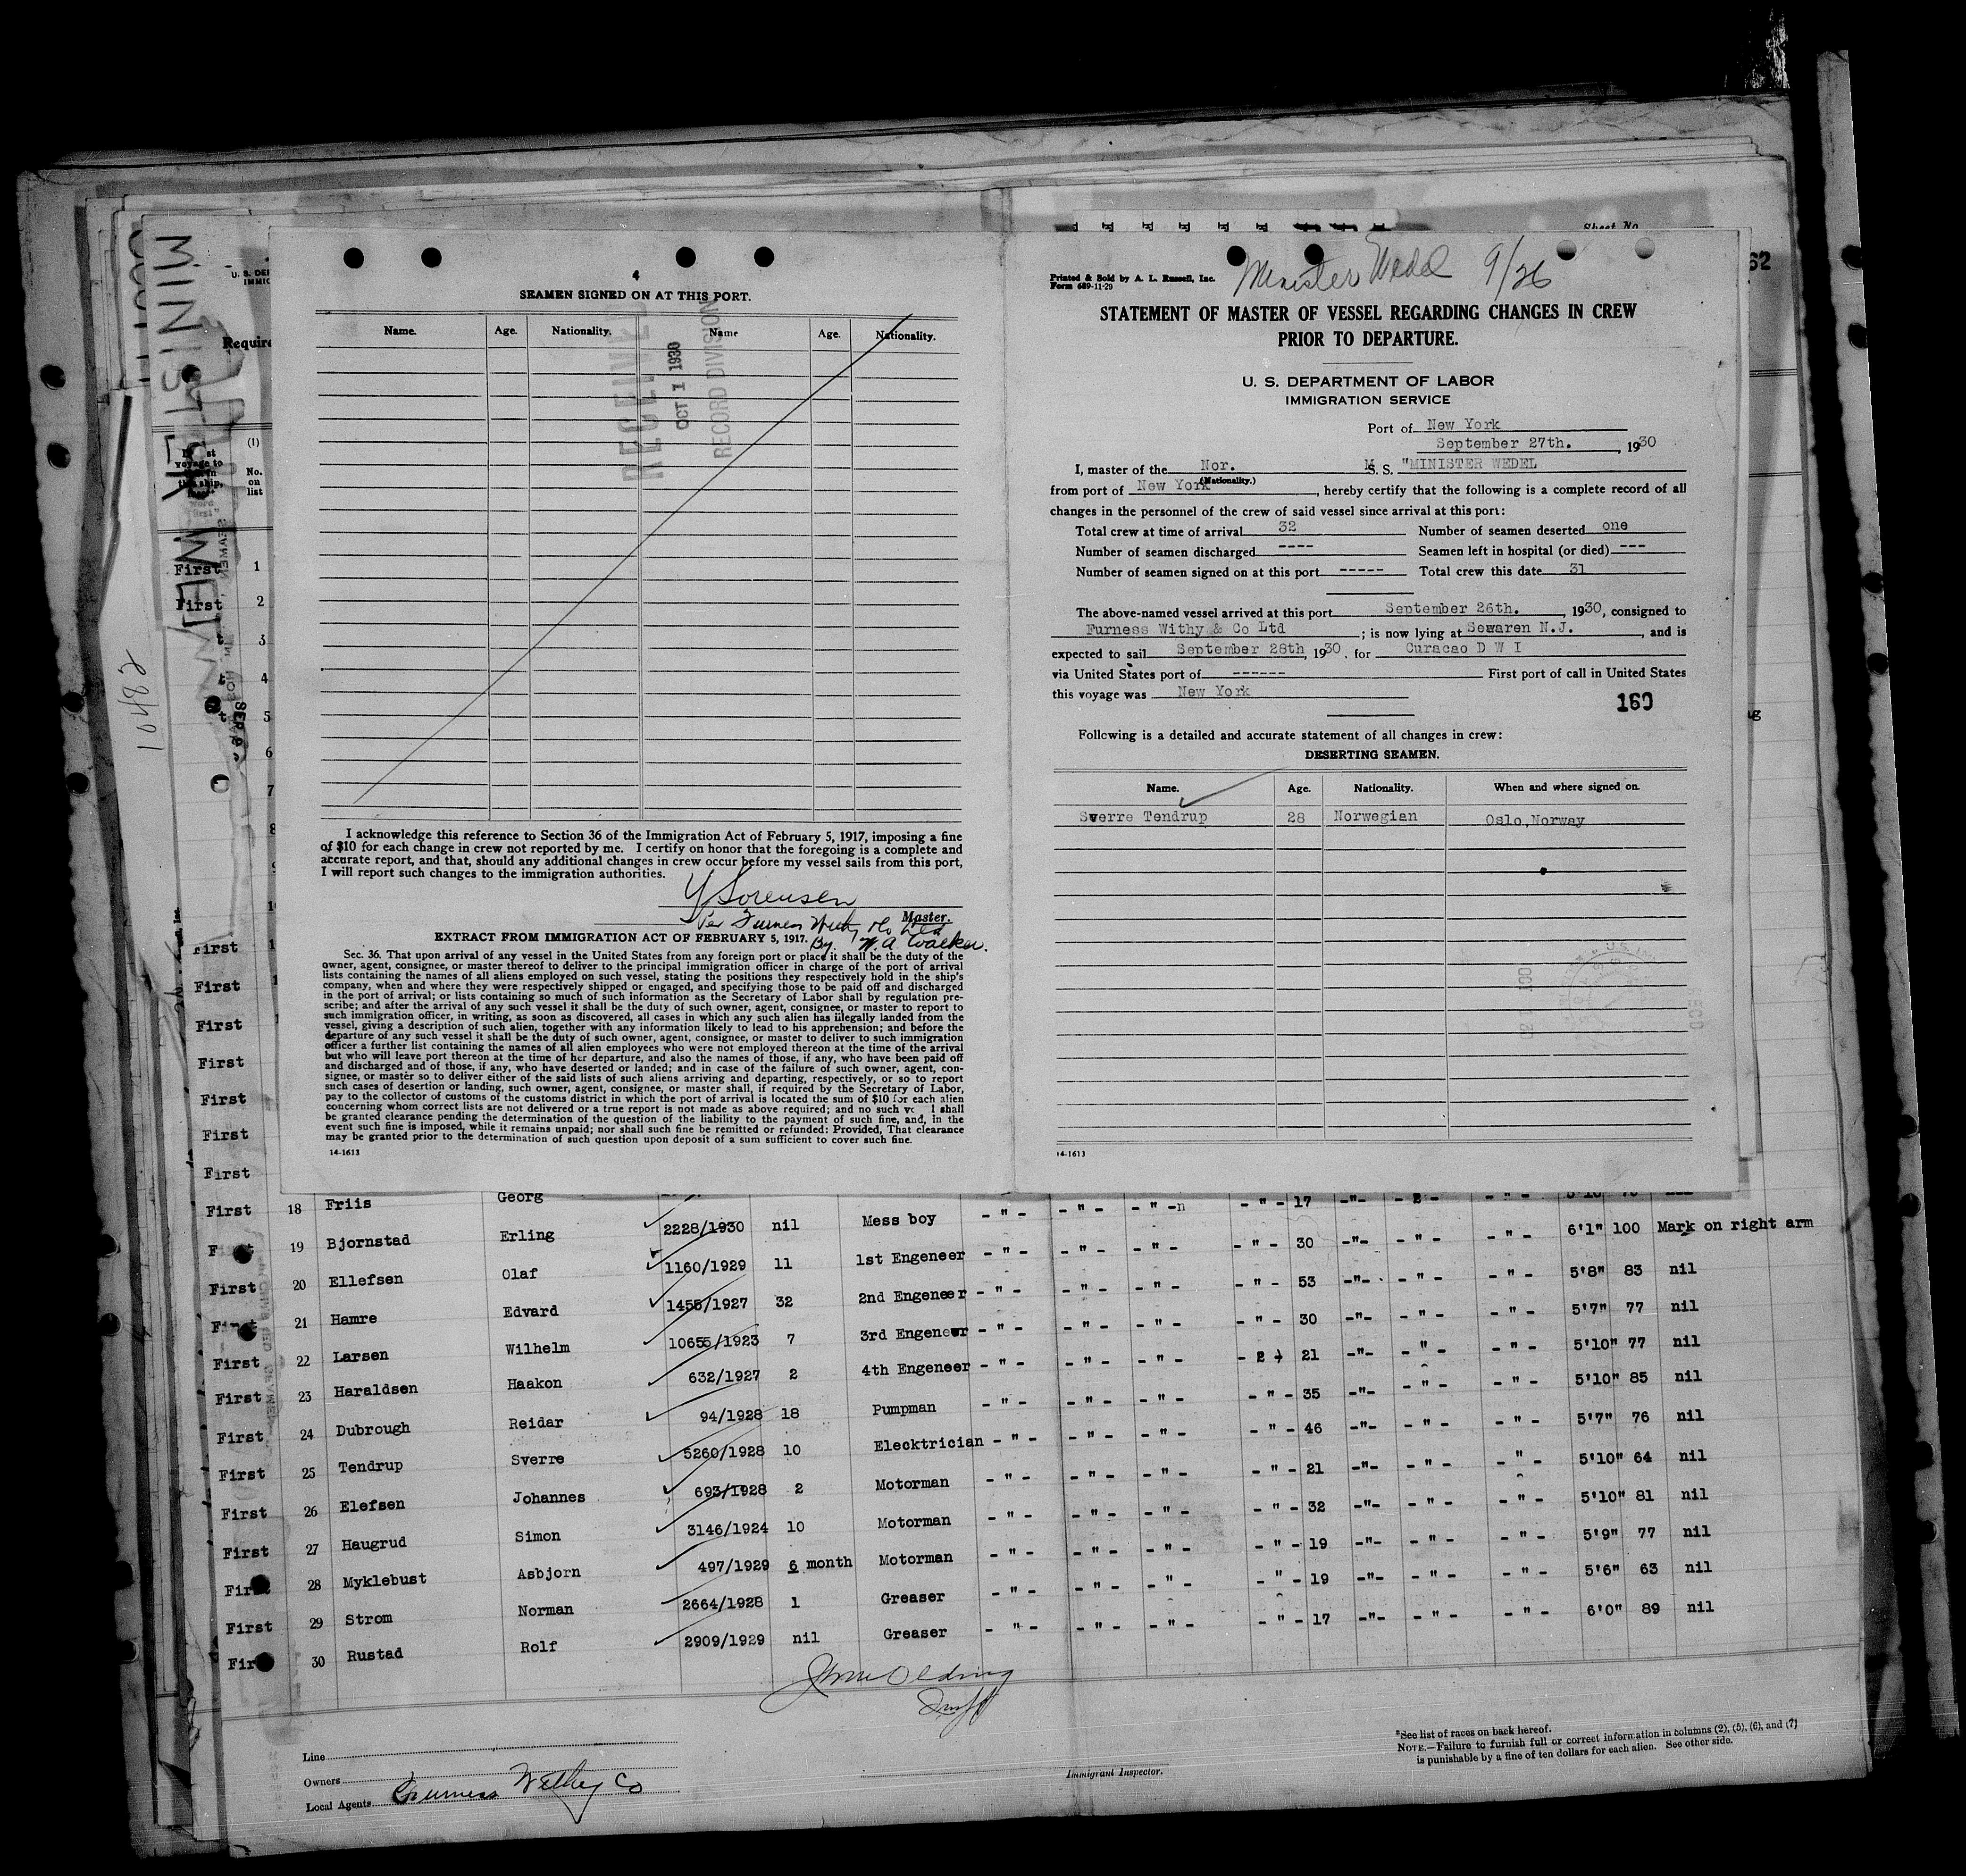 MINISTER WEDEL
10482
U. S. DE
IMMIG
Require
Sheet No.
62
(1)
No.
on
list
4
SEAMEN SIGNED ON AT THIS PORT.
Name. Age. Nationality. Name Age. Nationality.
RECEIVED
OCT 1 1930
RECORD DIVISION
I acknowledge this reference to Section 36 of the Immigration Act of February 5, 1917, imposing a fine
of $10 for each change in crew not reported by me. I certify on honor that the foregoing is a complete and
accurate report, and that, should any additional changes in crew occur before my vessel sails from this port,
I will report such changes to the immigration authorities.
Y Sorensen
Master.
Per Furness Withy & Co Ltd
By. W. A Walker.
EXTRACT FROM IMMIGRATION ACT OF FEBRUARY 5, 1917.
Sec. 36. That upon arrival of any vessel in the United States from any foreign port or place it shall be the duty of the
owner, agent, consignee, or master thereof to deliver to the principal immigration officer in charge of the port of arrival
lists containing the names of all aliens employed on such vessel, stating the positions they respectively hold in the ship's
company, when and where they were respectively shipped or engaged, and specifying those to be paid off and discharged
in the port of arrival; or lists containing so much of such information as the Secretary of Labor shall by regulation pre-
scribe; and after the arrival of any such vessel it shall be the duty of such owner, agent, consignee, or master to report to
such immigration officer, in writing, as soon as discovered, all cases in which any such alien has illegally landed from the
vessel, giving a description of such alien, together with any information likely to lead to his apprehension; and before the
departure of any such vessel it shall be the duty of such owner, agent, consignee, or master to deliver to such immigration
officer a further list containing the names of all alien employees who were not employed thereon at the time of the arrival
but who will leave port thereon at the time of her departure, and also the names of those, if any, who have been paid off
and discharged and of those, if any, who have deserted or landed; and in case of the failure of such owner, agent, con-
signee, or master so to deliver either of the said lists of such aliens arriving and departing, respectively, or so to report
such cases of desertion or landing, such owner, agent, consignee, or master shall, if required by the Secretary of Labor,
pay to the collector of customs of the customs district in which the port of arrival is located the sum of $10 for each alien
concerning whom correct lists are not delivered or a true report is not made as above required; and no such ve l shall
be granted clearance pending the determination of the question of the liability to the payment of such fine, and, in the
event such fine is imposed, while it remains unpaid; nor shall such fine be remitted or refunded: Provided, That clearance
may be granted prior to the determination of such question upon deposit of a sum sufficient to cover such fine.
14-1613
Printed & Sold by A. L. Russell, Inc.
Form 689-11-29
Minister Wedel 9/26
STATEMENT OF MASTER OF VESSEL REGARDING CHANGES IN CREW
PRIOR TO DEPARTURE.
U. S. DEPARTMENT OF LABOR
IMMIGRATION SERVICE
Port of New York
September 27th. , 1930
I, master of the Nor. M S. S. "MINISTER WEDEL
(Nationality.)
from port of New York , hereby certify that the following is a complete record of all
changes in the personnel of the crew of said vessel since arrival at this port:
Total crew at time of arrival 32 Number of seamen deserted one
Number of seamen discharged ---- Seamen left in hospital (or died) ---
Number of seamen signed on at this port ----- Total crew this date 31
The above-named vessel arrived at this port September 26th. , 1930, consigned to
Furness Withy & Co Ltd ; is now lying at Sewaren N.J. , and is
expected to sail September 28th, 1930, for Curacao D W I
via United States port of ------ First port of call in United States
this voyage was New York
160
Following is a detailed and accurate statement of all changes in crew:
DESERTING SEAMEN.
Name. Age. Nationality. When and where signed on.
Sverre Tendrup 28 Norwegian Oslo,Norway
14-1613
First 1
First 2
3
4
5
6
7
8
First
First
First
First
First
First
First
First 18 Friis Georg 2228/1930 nil Mess boy - " - - " - - " -n - " - 17 -"- - " - - " - 6'1" 100 Mark on right arm
19 Bjornstad Erling 1160/1929 11 1st Engeneer - " - - " - - " - - " - 30 -"- - " - - " - 5'8" 83 nil
First 20 Ellefsen Olaf 1455/1927 32 2nd Engeneer - " - - " - - " - - " - 53 -"- - " - - " - 5'7" 77 nil
21 Hamre Edvard 10655/1923 7 3rd Engeneer - " - - " - - " - - " - 30 -"- - " - - " - 5'10" 77 nil
First 22 Larsen Wilhelm 632/1927 2 4th Engeneer - " - - " - - " - 21 -"- - " - - " - 5'10" 85 nil
First 23 Haraldsen Haakon 94/1928 18 Pumpman - " - - " - - " - - " - 35 -"- - " - - " - 5'7" 76 nil
First 24 Dubrough Reidar 5260/1928 10 Elecktrician - " - - " - - " - " - 46 -"- - " - - " - 5'10" 64 nil
First 25 Tendrup Sverre 693/1928 2 Motorman - " - - " - - " - - " - 21 -"- - " - - " - 5'10" 81 nil
First 26 Elefsen Johannes 3146/1924 10 Motorman - " - - " - - " - - " - 32 -"- - " - - " - 5'9" 77 nil
First 27 Haugrud Simon 497/1929 6 month Motorman - " - - " - - " - - " - 19 -"- - " - - " - 5'6" 63 nil
First 28 Myklebust Asbjorn 2664/1928 1 Greaser - " - - " - - " - - " - 19 -"- - " - - " - 6'0" 89 nil
First 29 Strom Norman 2909/1929 nil Greaser - " - - " - - " - - " - 17 -"- - " - - " -
30 Rustad Rolf
Line
Owners
Local Agents Furness Withy Co
Immigrant Inspector.
*See list of races on back hereof.
NOTE.—Failure to furnish full or correct information in columns (2), (5), (6), and (7)
is punishable by a fine of ten dollars for each alien. See other side.